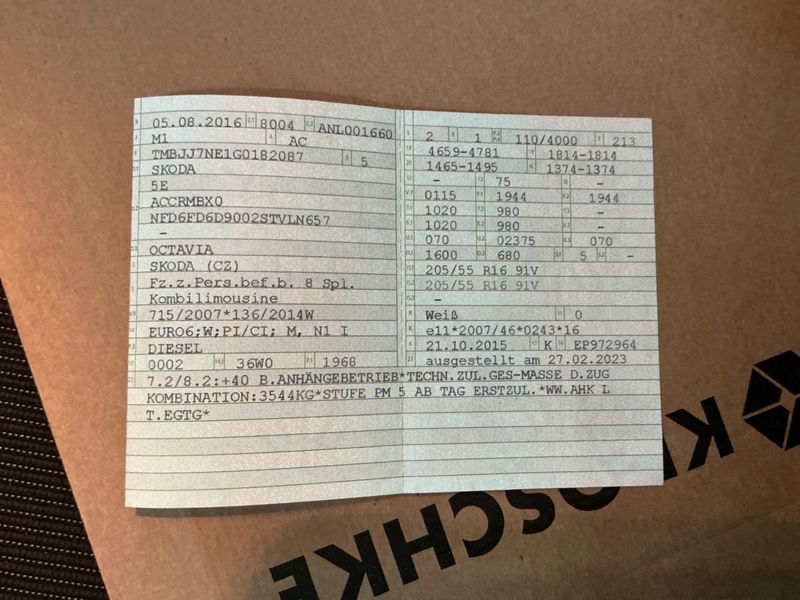 05.08.2016 8004 ANL001660
M1 AC
TMBJJ7NE1G0182087 5
SKODA
5E
ACCRMBX0
NFD6FD6D9002STVLN657
–
OCTAVIA
SKODA (CZ)
Fz.z.Pers.bef.b. 8 Spl.
Kombilimousine
715/2007*136/2014W
EURO6;W;PI/CI; M, N1 I
DIESEL
0002 36W0 1968
2 1 110/4000 213
4659-4781 1814-1814
1465-1495 1374-1374
– 75 –
0115 1944 1944
1020 980 –
1020 980 –
070 02375 070
1600 680 5 –
205/55 R16 91V
205/55 R16 91V
–
Weiß 0
e11*2007/46*0243*16
21.10.2015 K EP972964
ausgestellt am 27.02.2023
7.2/8.2:+40 B.ANHÄNGEBETRIEB*TECHN.ZUL.GES-MASSE D.ZUG
KOMBINATION:3544KG*STUFE PM 5 AB TAG ERSTZUL.*WW.AHK L
T.EGTG*
KROSCHKE